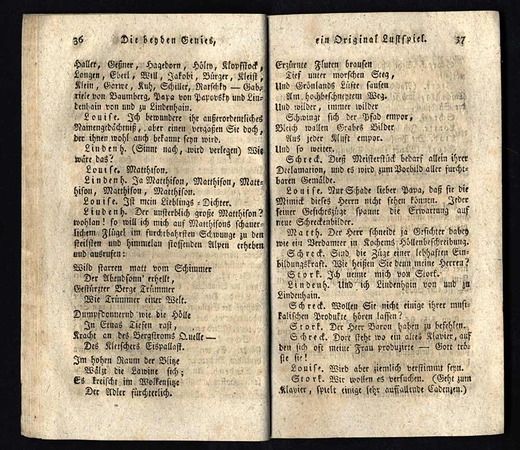 36 Die beyden Genies,
Haller, Geßner, Hagedorn, Hölty, Klopfstock,
Langen, Eberl, Will, Jakobi, Bürger, Kleist,
Klein, Garwe, Kuh, Schiller, Marschky — Gab-
riele von Baumberg, Papa von Papovsky und Lin-
denhain von und zu Lindenhain.
Louise. Ich bewundre ihr außerordentliches
Namengedächtniß, aber einen vergaßen Sie doch,
der ihnen wohl auch bekannt seyn wird.
Lindenh. (Sinnt nach, wird verlegen) Wie
wäre das?
Louise. Matthison.
Lindenh. Ja Matthison, Matthison, Matt-
hison, Matthison, Matthison.
Louise. Ist mein Lieblings-Dichter.
Lindenh. Der unsterblich große Matthison?
wohlan! so will ich mich auf Matthisons schauer-
lichem Flügel im furchtbahrsten Schwunge zu den
steilsten und himmelan stoßenden Alpen erheben
und ausrufen:
Wild starren matt vom Schimmer
Der Abendsonn' erhellt,
Gestürzter Berge Trümmer
Wie Trümmer einer Welt.
Dumpfdonnernd wie die Hölle
In Etnas Tiefen rast,
Kracht an des Bergstroms Quelle —
Des Kletschers Eispallast.
Im hohen Raum der Blitze
Wälzt die Lawine sich;
Es kreischt im Wolkensitze
Der Adler fürchterlich.
ein Original Lustspiel. 37
Erzürnte Fluten brausen
Tief unter morschen Steg,
Und Grönlands Lüfte sausen
Am hochbeschneytem Weg.
Und wilder, immer wilder
Schwingt sich der Pfad empor,
Bleich wallen Grabes Bilder
Aus jeder Kluft empor.
Und so weiter.
Schreck. Dieß Meisterstück bedarf allein ihrer
Declamation, und es wird zum Vorbild aller furcht-
baren Gemälde.
Louise. Nur Schade lieber Papa, daß sie die
Mimick dieses Herrn nicht sehen können. Jeder
seiner Gesichtszüge spannt die Erwartung auf
neue Schreckenbilder.
Matth. Der Herr schneidt ja Gesichter dabey
wie ein Verdamter in Kochems Höllenbeschreibung.
Schreck. Sind die Züge einer lebhaften Ein-
bildungskraft. Wie heißen Sie dann meine Herren?
Stork. Ich nenne mich von Stork.
Lindenh. Und ich Lindenhain von und zu
Lindenhain.
Schreck. Wollen Sie nicht einige ihrer musi-
kalischen Produkte hören lassen?
Stork. Der Herr Baron haben zu befehlen.
Schreck. Dort steht wo ein altes Klavier, auf
den sich oft meine Frau produzirte — Gott trö-
ste sie!
Louise. Wird aber ziemlich verstimmt seyn.
Stork. Wir wollen es versuchen. (Geht zum
Klavier, spielt einige sehr auffallende Cadenzen.)